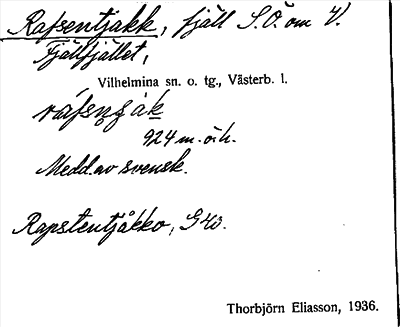 Rafsentjakk, fjäll S.Ö. om V.
Fjällfjället,
Vilhelmina sn. o. tg., Västerb. l.
924 m. ö. h.
Medd. av svensk.
Rapstentjåkko, G 40.
Thorbjörn Eliasson, 1936.